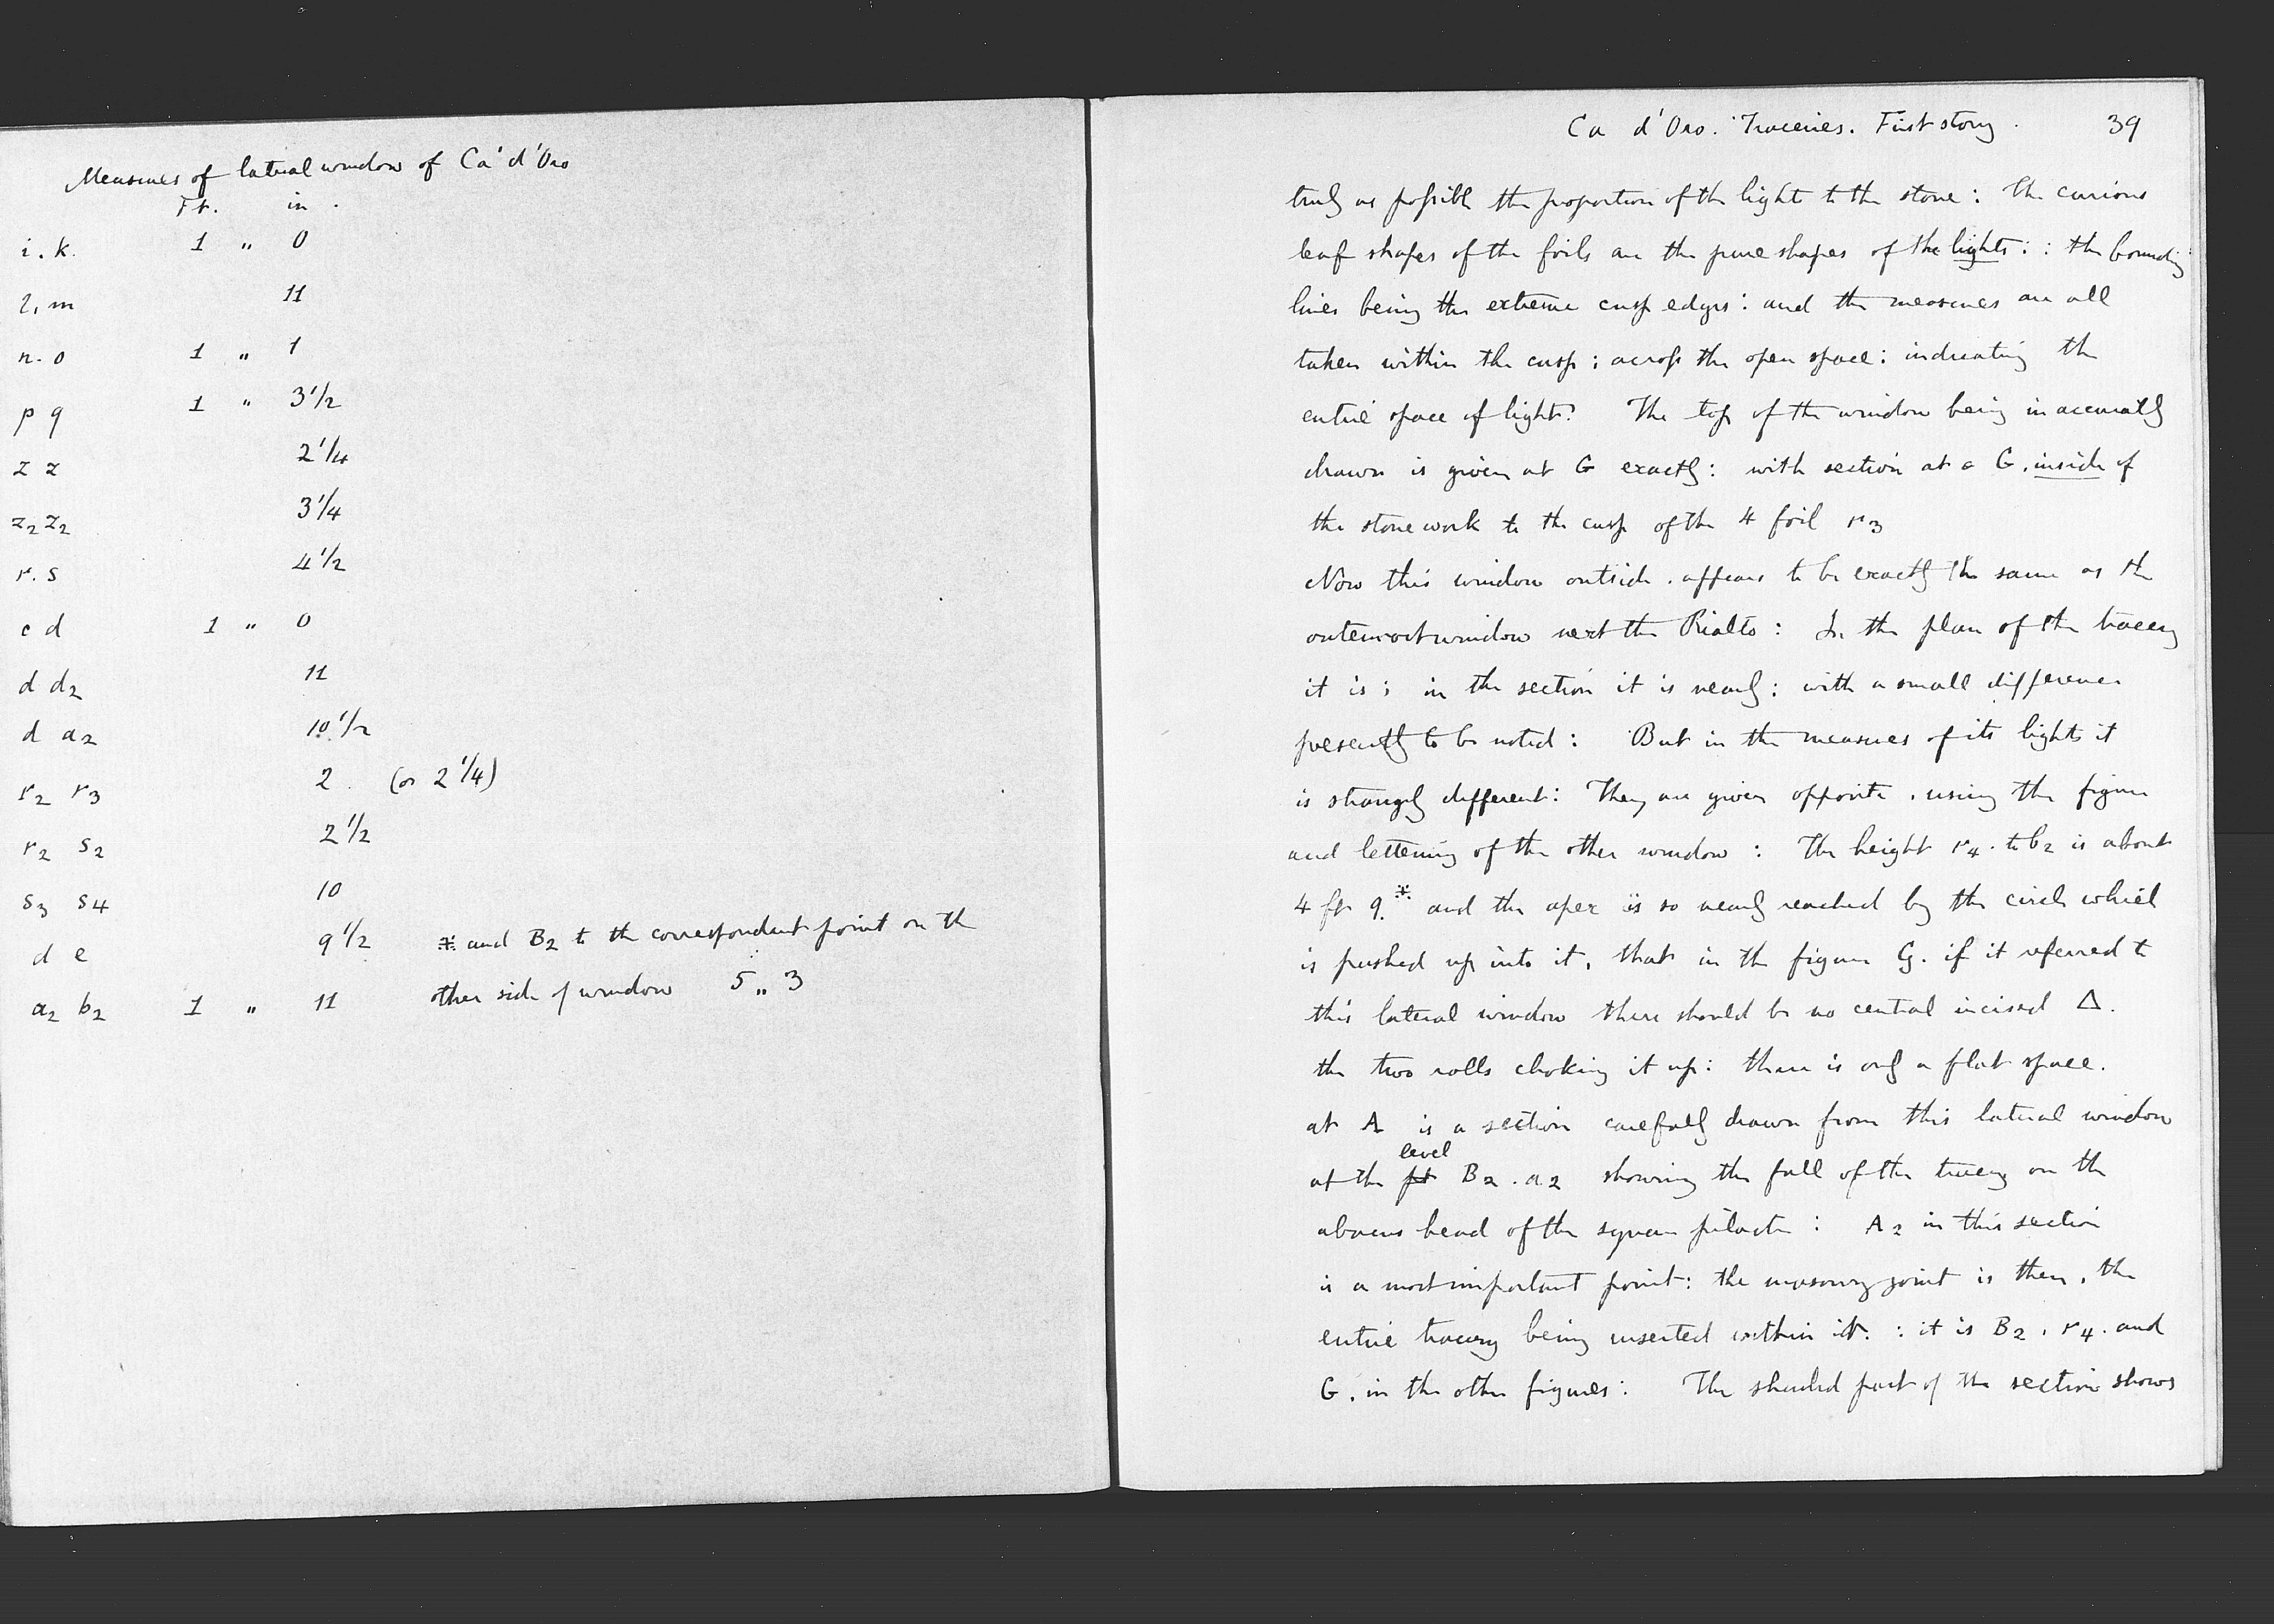 Measures of lateral window of Ca' d'Oro
Ft. in.
i. k. 1 " 0
l, m 11
n. o 1 " 1
p q 1 " 3 1/2
z z 2 1/4
z2 z2 3 1/4
r. s 4 1/2
c d 1 " 0
d d2 11
d a2 10 1/2
r2 r3 2. (or 2 1/4)
r2 s2 2 1/2
s3 s4 10
d e 9 1/2
a2 b2 1 " 11
※ and B2 to the correspondent point on the
other side of window 5 „ 3
Ca d'Oro. Traceries. First story. 39
truly as possible the proportion of the light to the stone: The curious
leaf shapes of the foils are the pure shapes of the lights: : the bounding
lines being the extreme cusp edges: and the measures are all
taken within the cusp; across the open space: indicating the
entire space of light: The top of the window being inaccurately
drawn is given at G exactly: with section at a G. inside of
the stone work to the cusp of the 4 foil r3
Now this window outside. appears to be exactly the same as the
outermost window next the Rialto: In the plan of the tracery
it is; in the section it is nearly: with a small difference
presently to be noted: But in the measures of its lights it
is strangely different: They are given opposite, using the figure
and lettering of the other window: The height r4. to b2 is about
4 ft 9.※ and the apex is so nearly reached by the circle which
is pushed up into it, that in the figure G. if it referred to
this lateral window there should be no central incised Δ.
the two rolls choking it up: there is only a flat space.
at A is a section carefully drawn from this lateral window
level
at the pt B2. a2 showing the fall of the tracery on the
abacus head of the square pilaster: A2 in this section
is a most important point: the masonry joint is there, the
entire tracery being inserted within it: : it is B2, r4. and
G. in the other figures: The shaded part of the section shows